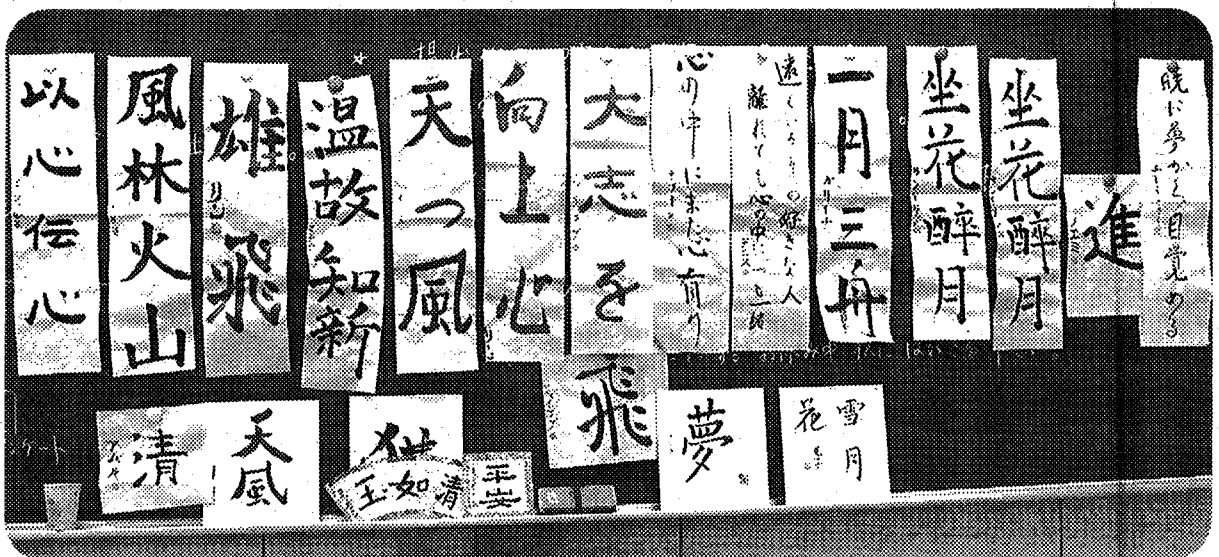 以心伝心
風林火山
雄飛
温故知新
天つ風
向上心
大志を
心の中にまた心有り
遠くいるりの好きな人
離れても心の中に
一月三舟
坐花醉月
坐花醉月
進
暁に夢かく目覚める
清
天風
猫
清如玉
平安
飛
夢
雪月花